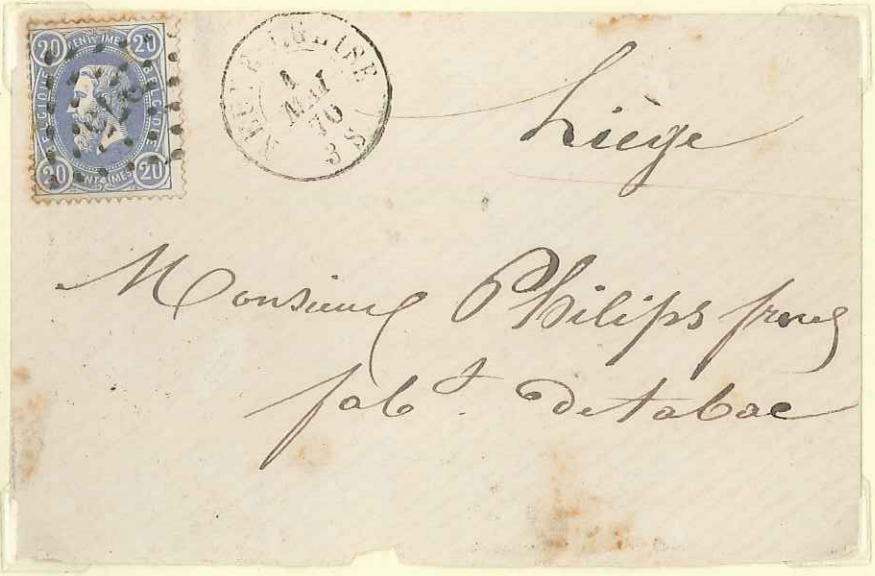 20 CENTIMES 20
BELGIQUE
BELGIQUE
20 CENTIMES 20
1
MAI
70
3 S
Liège
Monsieur Philips
fabt. de tabac